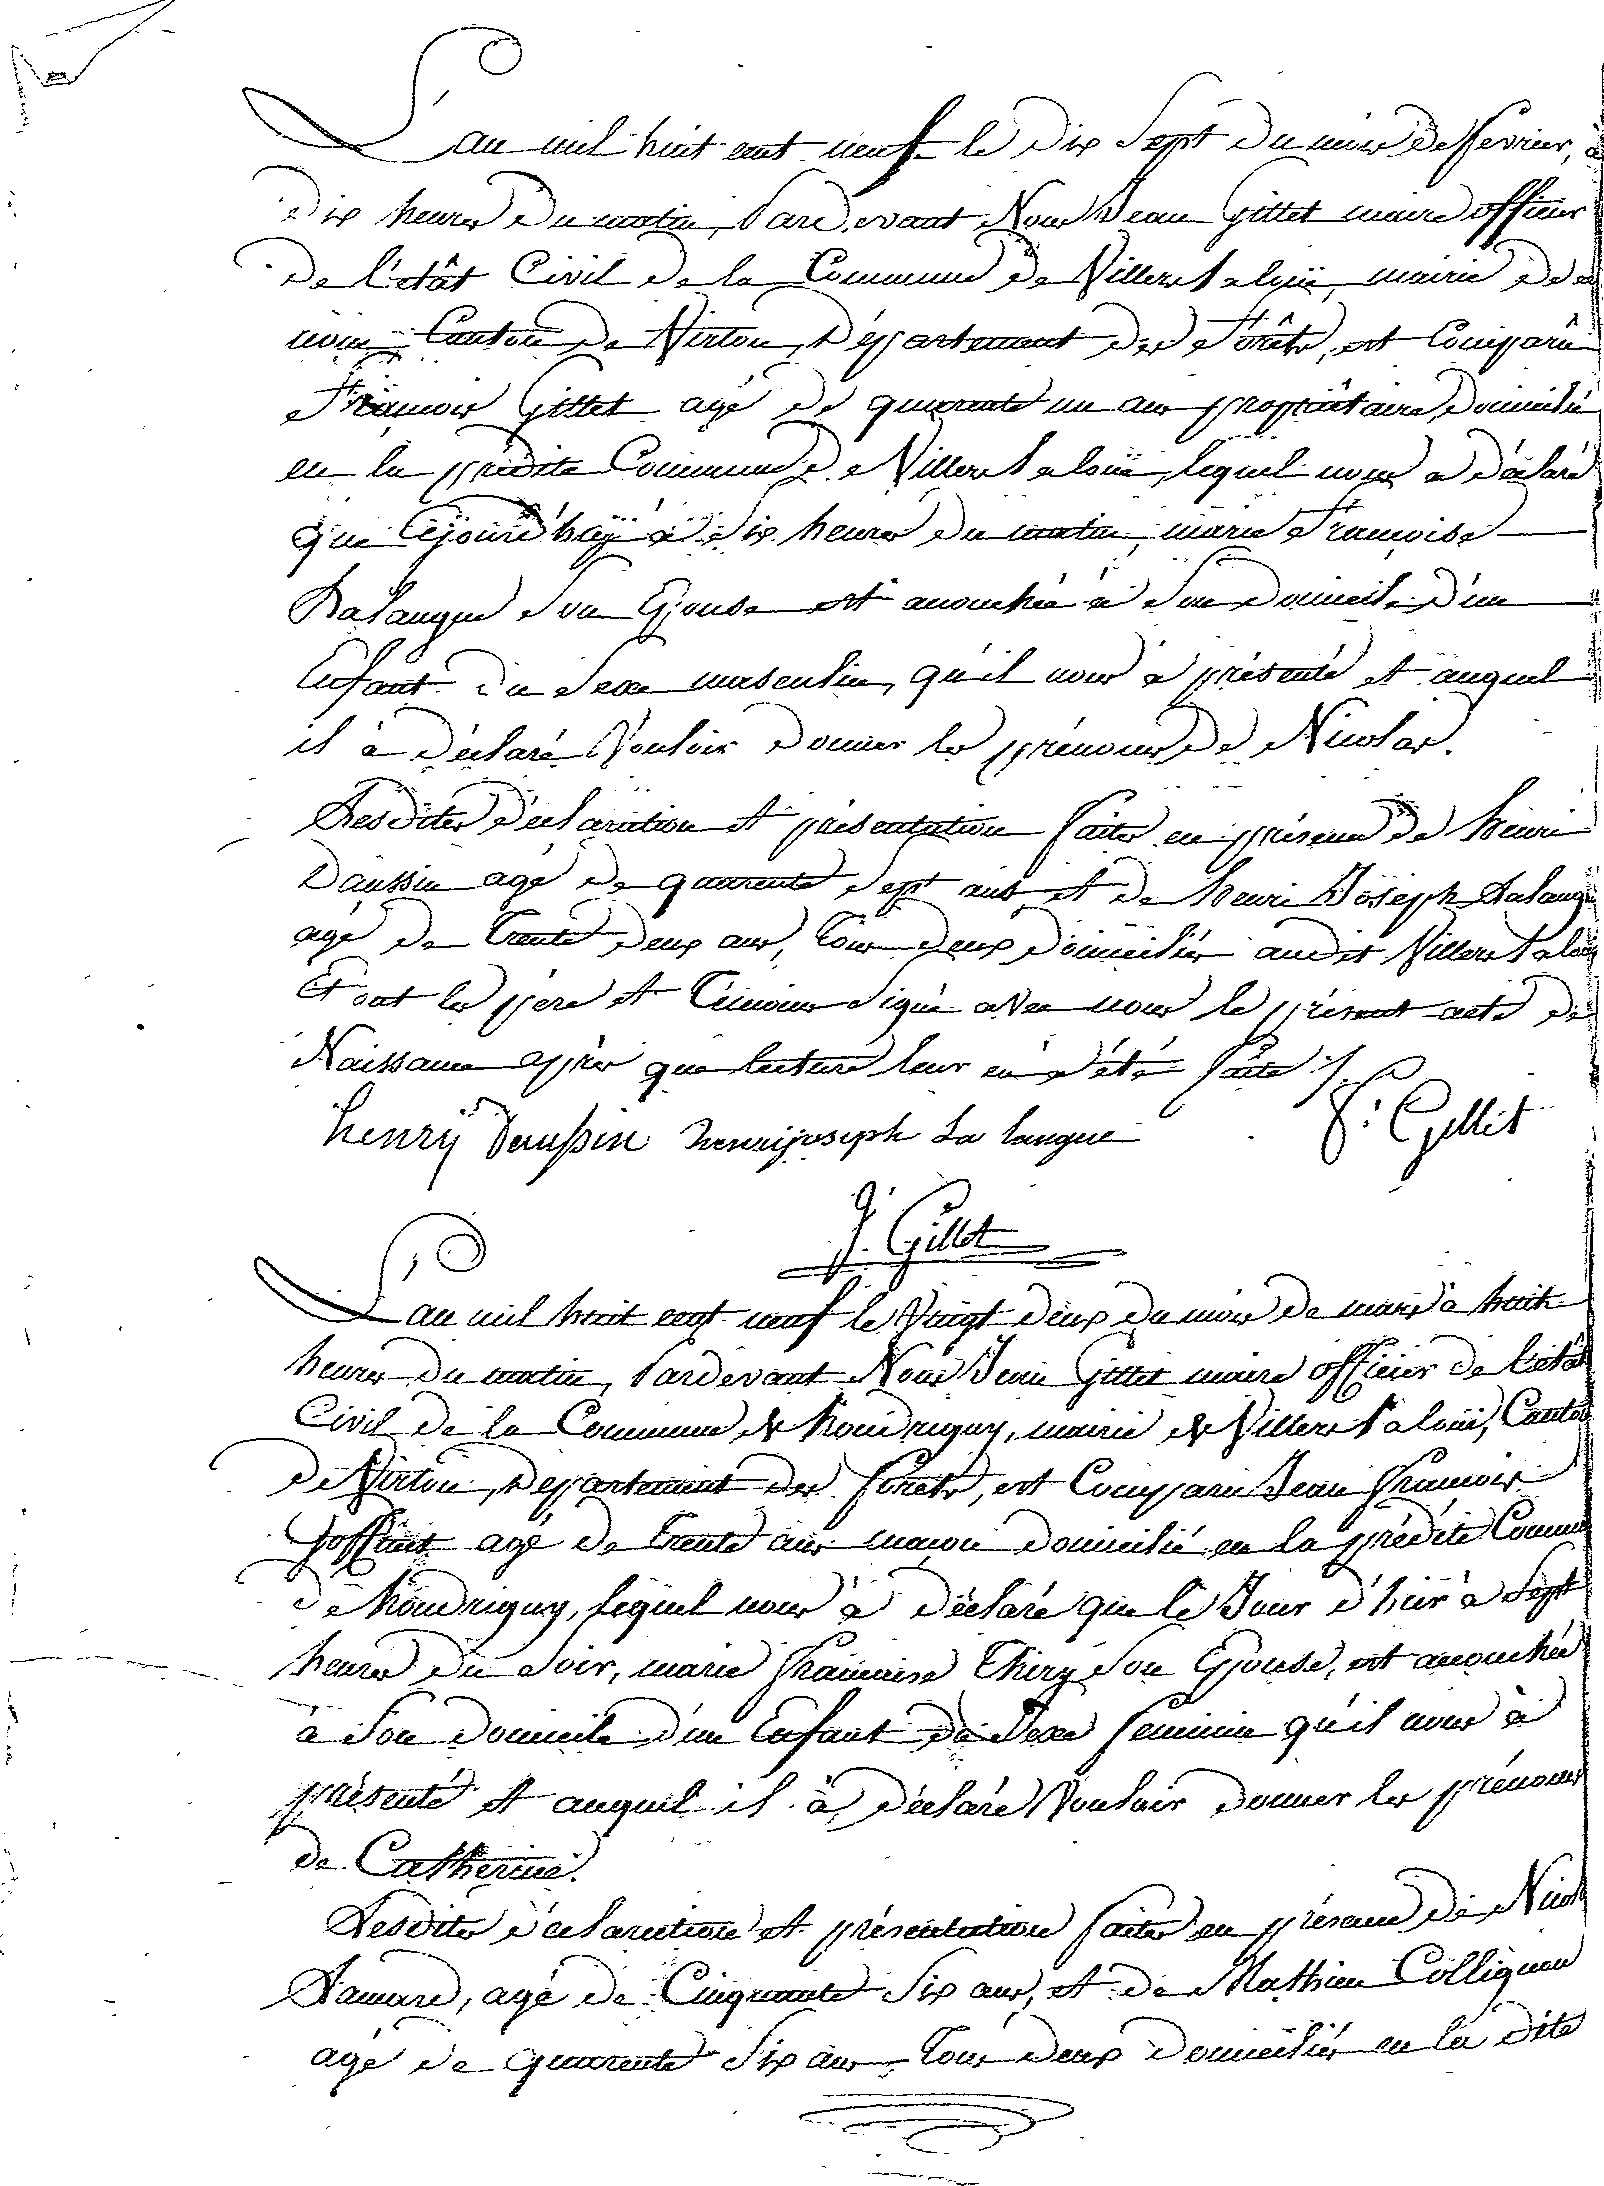 L'an mil huit cent neuf le dix Sept du mois de fevrier, à
dix heures du matin, Pardevant Nous Jean Gillet maire officier
de l'etât Civil de la Commune de Villers la loüe, mairie de ce
nom Canton de Virton, Département des Forêts, est Comparû
François Gillet agé de quarente un ans propriétaire, domicilié
en la prédite Commune de Villers la loüe, lequel nous a déclaré
que Cejourd'huÿ à dix heures du matin, marie Françoise
Lalangue Son Epouse est accouchée à Son Domicile d'un
Enfant du Sexe masculin, qu'il nous à présenté et auquel
il à déclaré Vouloir donner les prénoms de Nicolas.
Lesdites déclaration et présentation faites en présence de henri
Daussin agé de quarente Sept ans et de henri Joseph Lalangue
agé de trente deux ans, tous deux domiciliés audit Villers la loüe
Et ont les père et temoins Signé avec nous le présent acte de
Naissance après que lecture leur en à été faite ./.
henrÿ Daussin henrijoseph La langue F: Gillet
J. Gillet
L'an mil huit cent neuf le Vingt deux du mois de mars à huit
heures du matin, Pardevant Nous Jean Gillet maire officier de l'etât
Civil de la Commune de houdrigny, mairie de Villers la loüe, Canton
de Virton, Département des forêts, est Comparu Jean François
agé de trente ans maçon domicilié en la prédite Commune
de houdrigny, lequel nous à déclaré que le Jour d'hier à Sept
heures du Soir, marie Françoise Thiry Son Epouse, est accouchée
à Son domicile d'un Enfant du Sexe feminin qu'il nous à
présenté et auquel il à déclaré Vouloir donner les prénoms
de Catherine.
Lesdites déclaration et présentation faites en présence de Nicolas
Lamard, agé de Cinquante Six ans, et de Mathieu Collignon
agé de quarente Six ans tous deux domiciliés en la dite